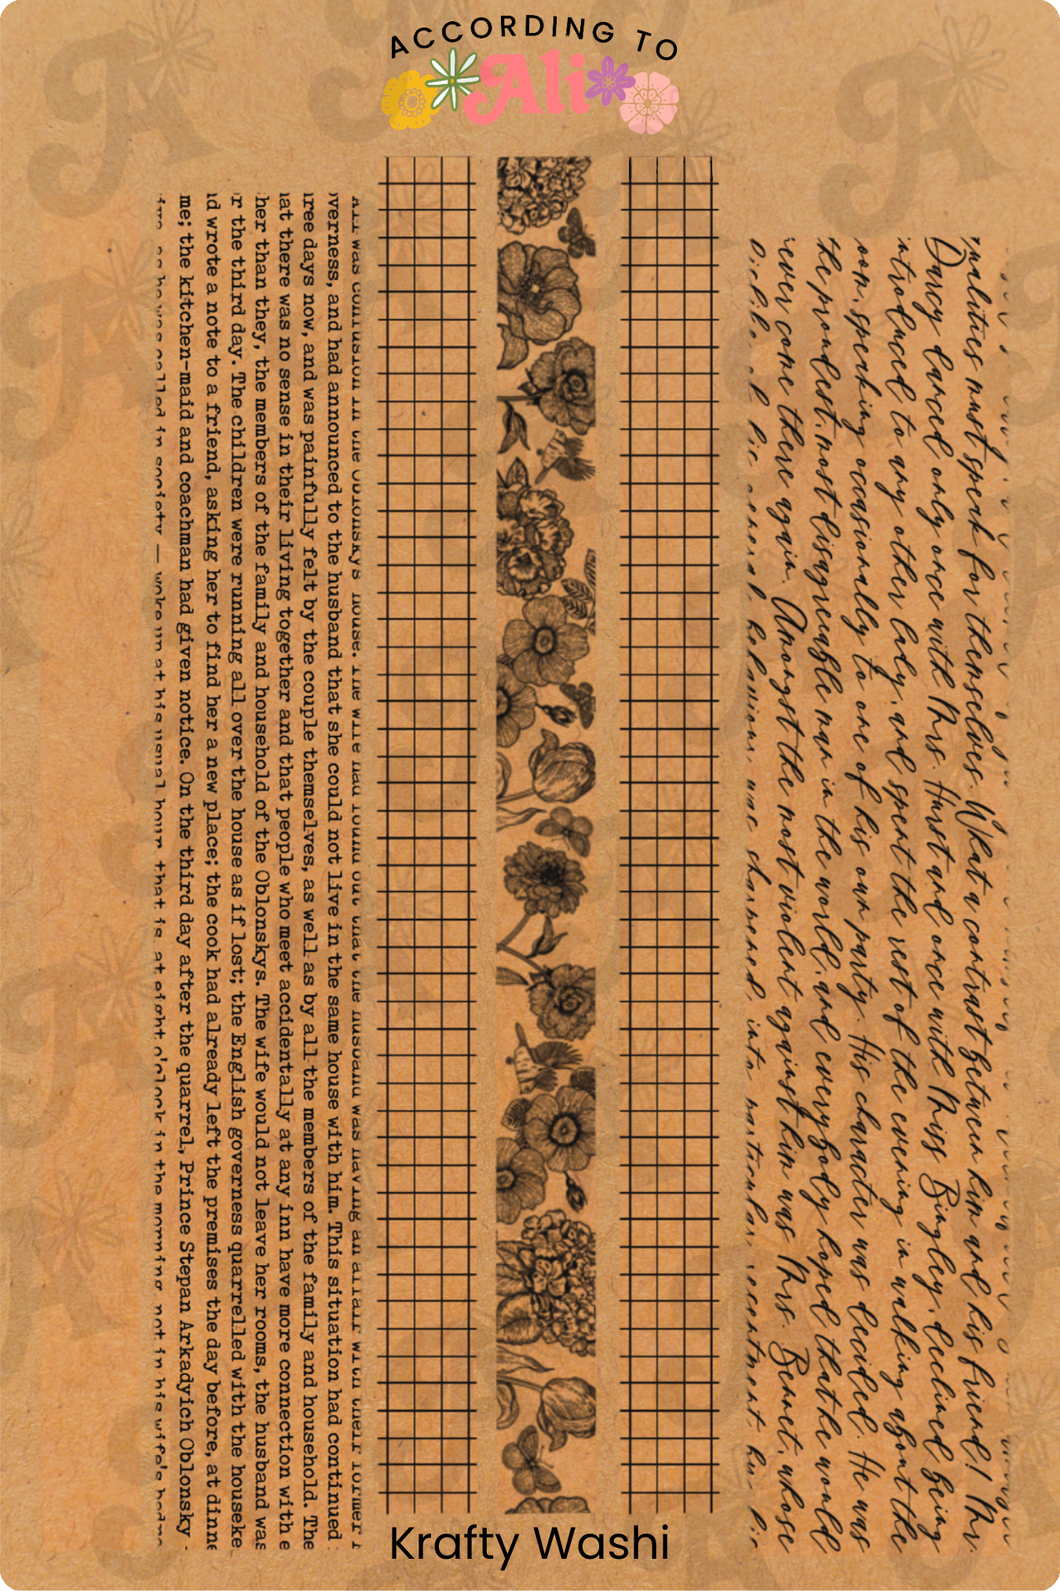 ACCORDING TO
Ali
All was confusion in the Oblonskys' house. The wife had found out that the husband was having an affair with their former
verness, and had announced to the husband that she could not live in the same house with him. This situation had continued
ree days now, and was painfully felt by the couple themselves, as well as by all the members of the family and household. The
at there was no sense in their living together and that people who meet accidentally at any inn have more connection with e
her than they, the members of the family and household of the Oblonskys. The wife would not leave her rooms, the husband was
r the third day. The children were running all over the house as if lost; the English governess quarrelled with the houseke
d wrote a note to a friend, asking her to find her a new place; the cook had already left the premises the day before, at dinne
me; the kitchen-maid and coachman had given notice. On the third day after the quarrel, Prince Stepan Arkadyich Oblonsky -
as he was called in society — woke up at his usual hour, that is, at eight o'clock in the morning, not in his wife's
qualities must speak for themselves. What a contrast between him and his friend! Mr.
Darcy danced only once with Mrs. Hurst and once with Miss Bingley, declined being
introduced to any other lady, and spent the rest of the evening in walking about the
room, speaking occasionally to one of his own party. His character was decided. He was
the proudest, most disagreeable man in the world, and everybody hoped that he would
never come there again. Amongst the most violent against him was Mrs. Bennet, whose
dislike of his general behaviour was sharpened into particular resentment by his
Krafty Washi